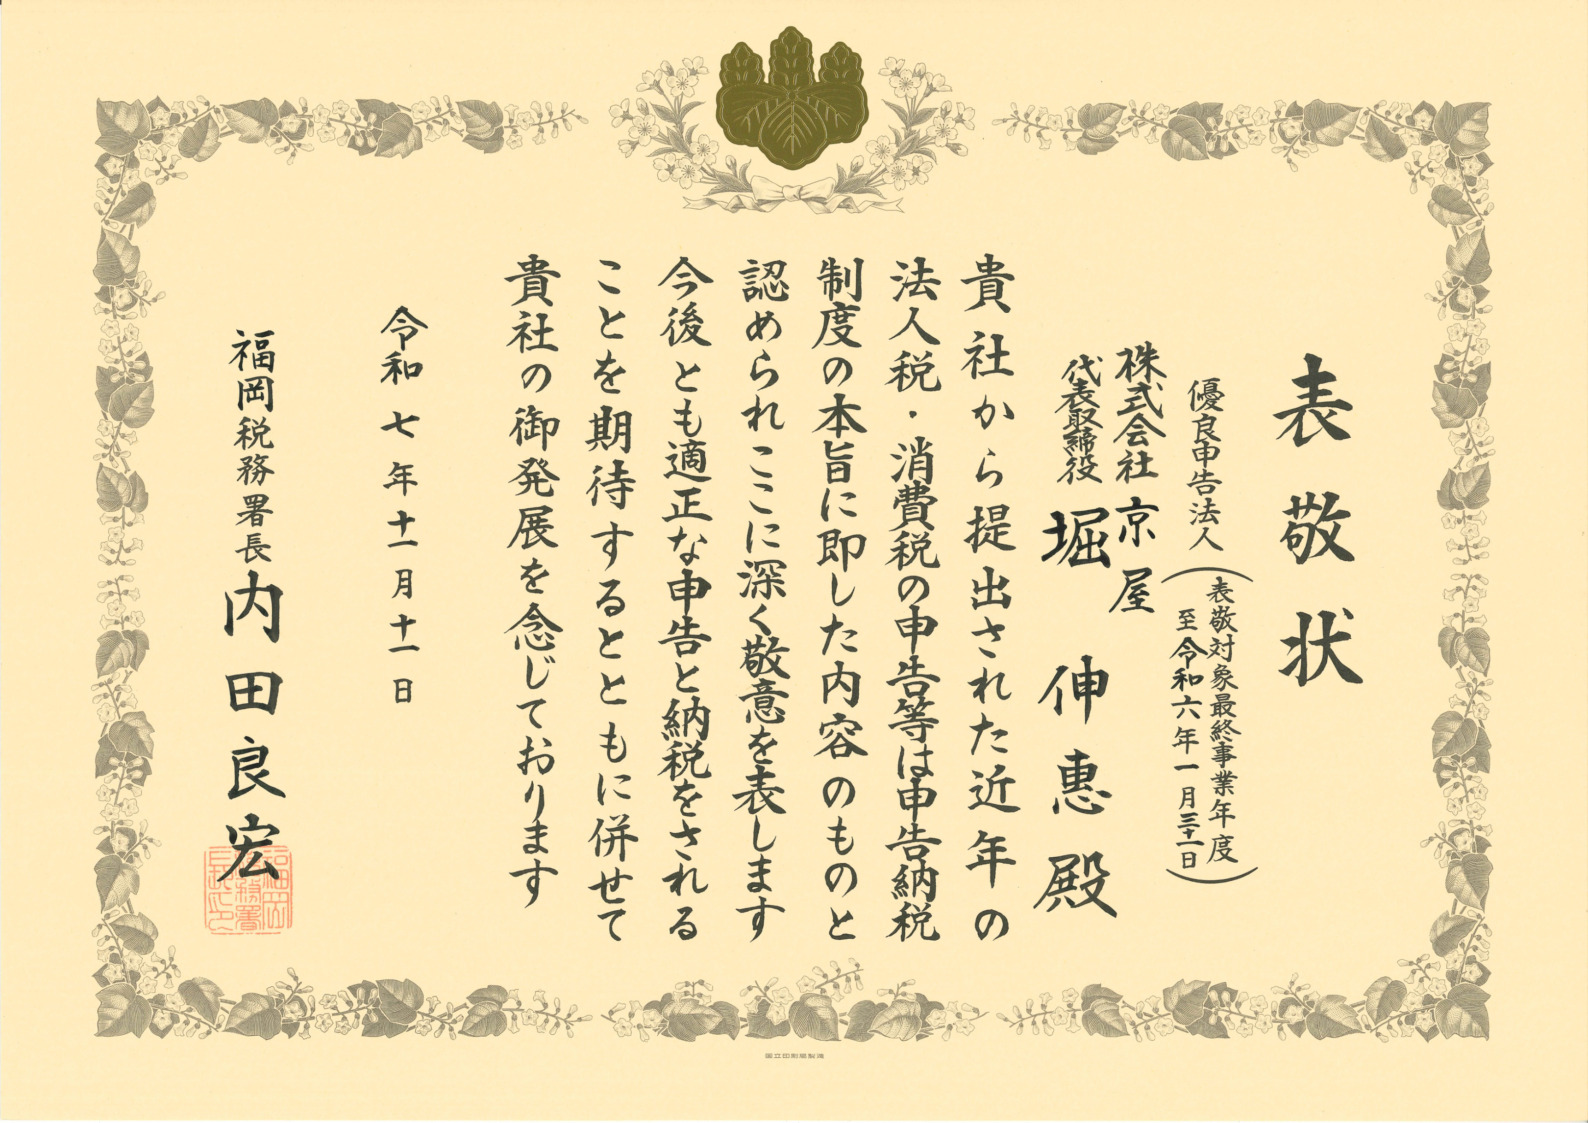 表敬状
優良申告法人
(表敬対象最終事業年度
至令和六年一月三十一日)
株式会社京屋
代表取締役 堀 伸惠 殿
貴社から提出された近年の
法人税・消費税の申告等は申告納税
制度の本旨に即した内容のものと
認められここに深く敬意を表します
今後とも適正な申告と納税をされる
ことを期待するとともに併せて
貴社の御発展を念じております
令和七年十一月十一日
福岡税務署長 内田良宏
福岡税務署長之印
国立印刷局製造